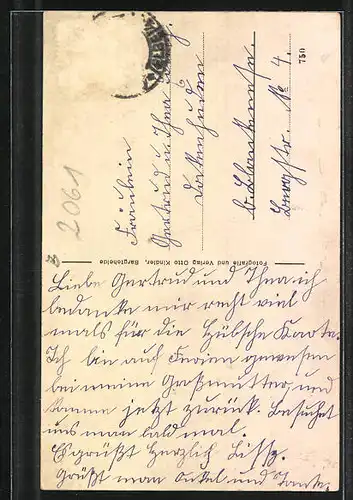 Fräulein
Gertrud u. Thea
Dockenhuden
b. Blankenese.
Bergstr. No 4.
750
2061
Fotografie und Verlag Otto Kindler, Bargteheide
Liebe Gertrud und Thea ich
bedanke mir recht viel
mals für die Hübsche Karte.
Ich bin auf Ferien gewesen
bei meine Großmutter, und
komme jetzt zurück. Besuchet
uns man bald mal.
Es grüßt Herzlich Lissy.
Grüßt man Onkel und Tante.